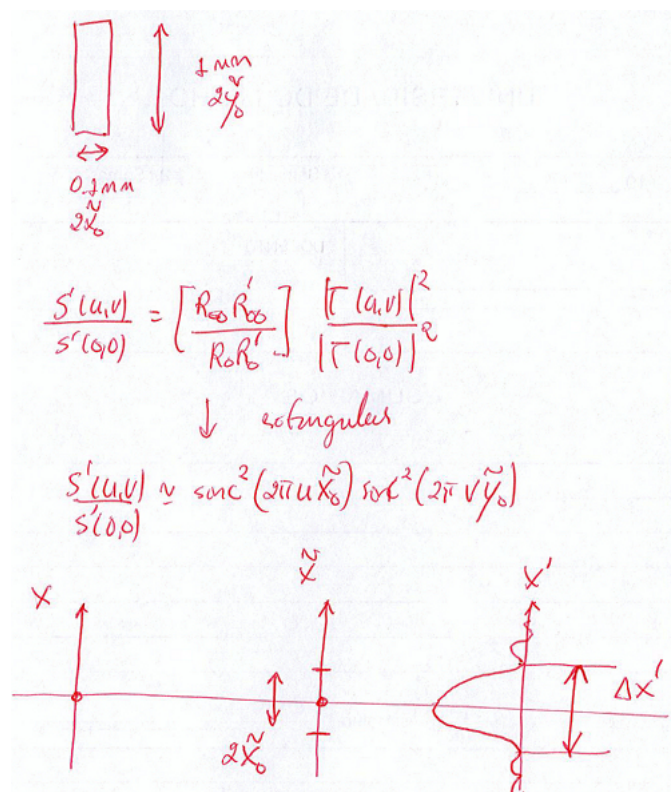 1 mm
2ỹ₀
0.1 mm
2x̃₀
S'(u,v)/S'(0,0) = [R₀₀ R'₀₀ / R₀ R₀'] |T(u,v)|² / |T(0,0)|²
↓
S'(u,v)/S'(0,0) ≃ sinc²(2πu x̃₀) sinc²(2π v ỹ₀)
x x̃ x'
2x̃₀ Δx'